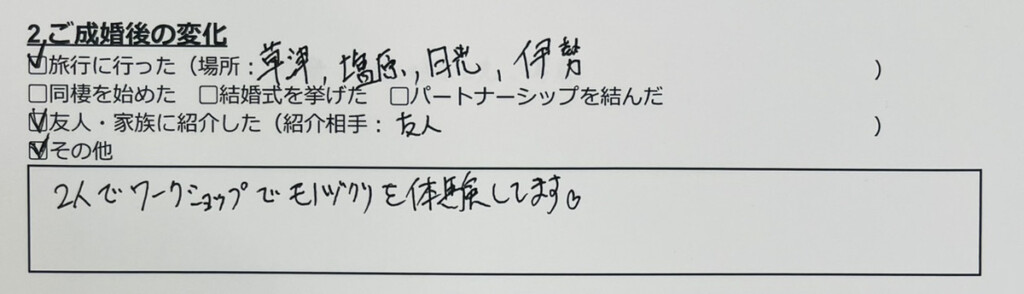 2.ご成婚後の変化
☑旅行に行った（場所：草津，塩原，日光，伊勢）
□同棲を始めた □結婚式を挙げた □パートナーシップを結んだ
☑友人・家族に紹介した（紹介相手：友人）
☑その他
2人でワークショップでモノヅクリを体験してます♡